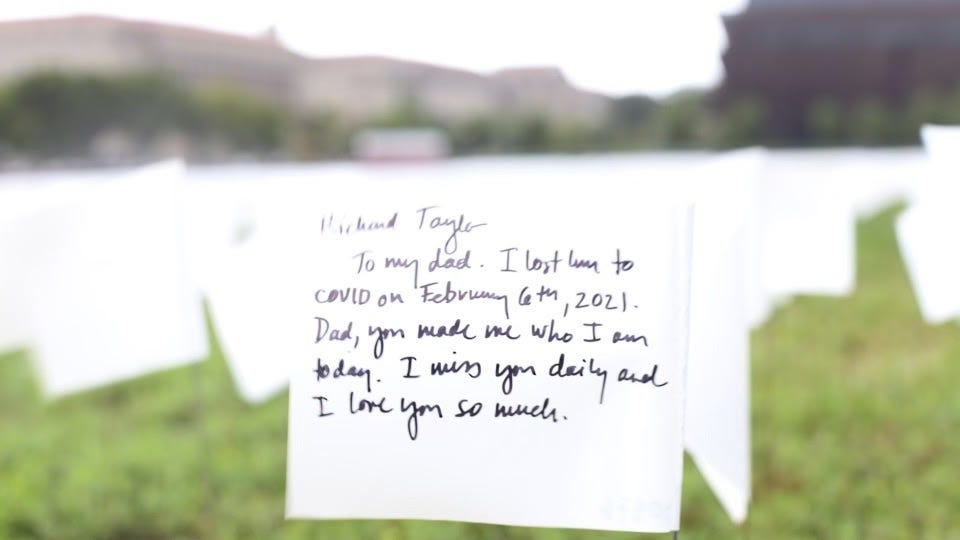 Richard Taylor
To my dad. I lost him to
COVID on February 6th, 2021.
Dad, you made me who I am
today. I miss you daily and
I love you so much.